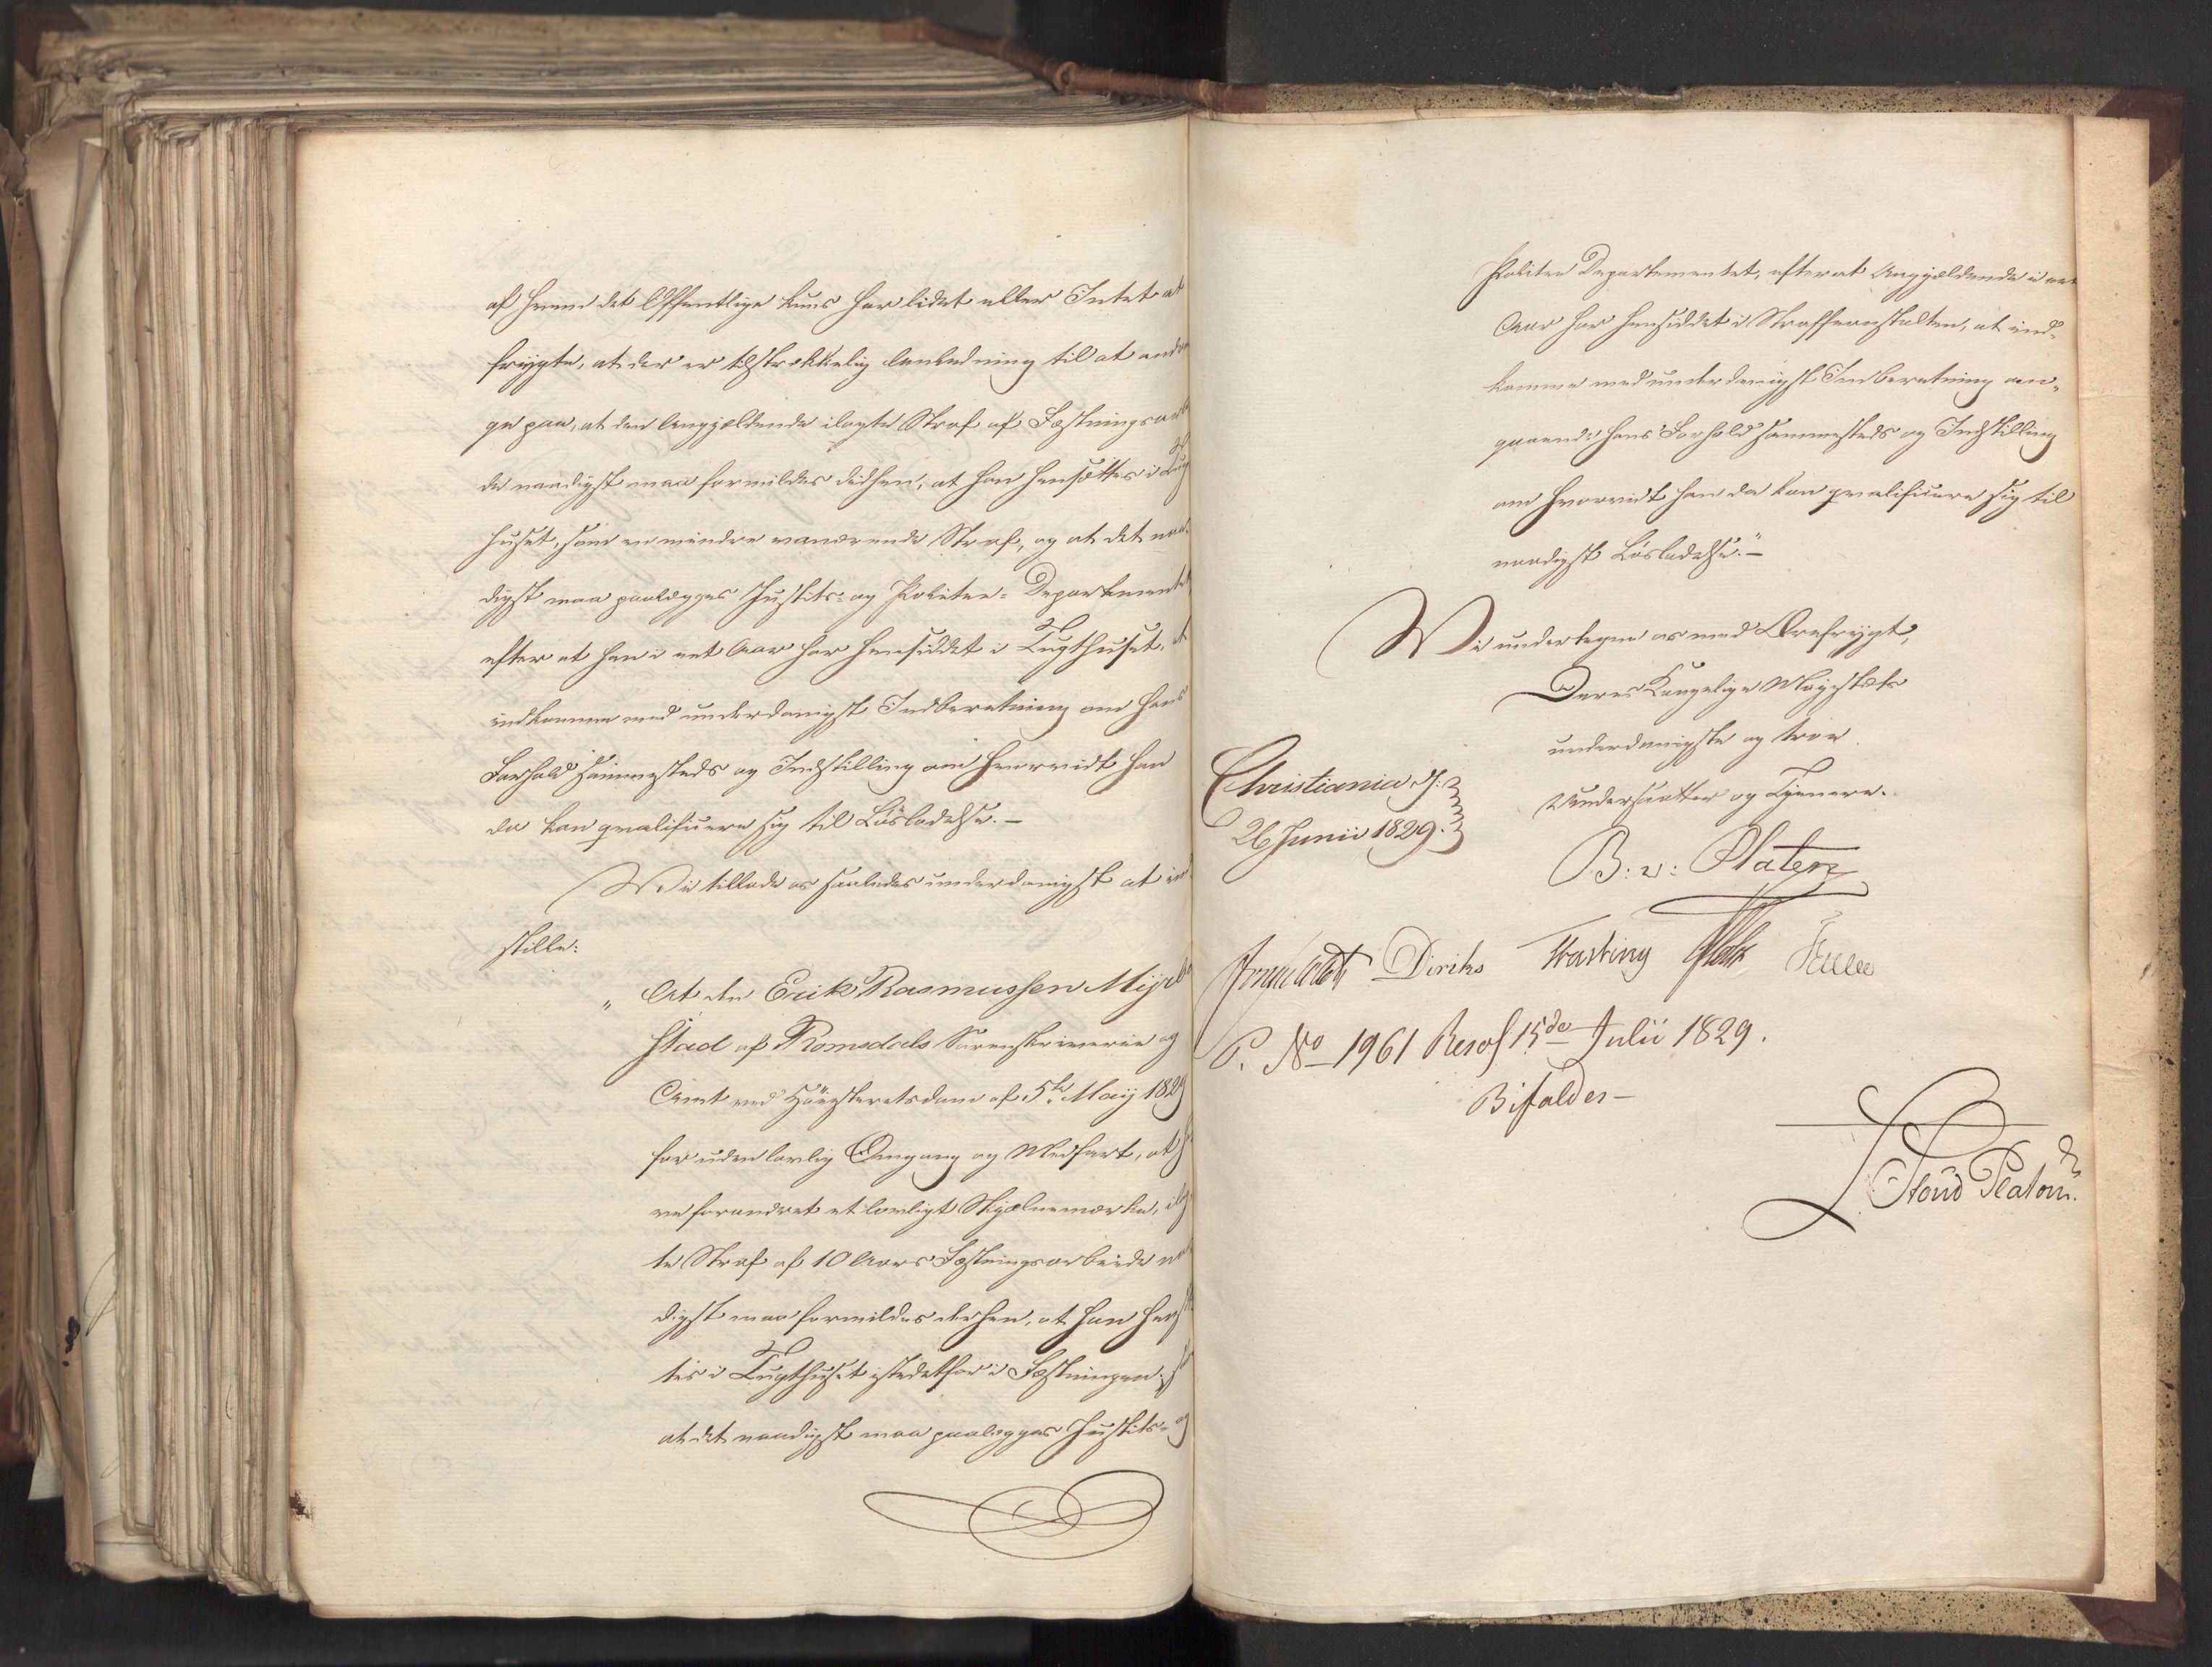 af hvem det Offentlige kuns har lidet eller Intet at
frygte, at der er tilstrækkelig Anledning til at andra
ge paa, at den Angjældende ilagte Straf af Fæstningsarb
de naadigst maa formildes derhen, at han hensættes i Tugt
huset, som en mindre vanærende Straf, og at det naa
digst maa paalægges Justits- og Politie-Departementet
efter at han i eet Aar har hensiddet i Tugthuset, at
indkomme med underdanigst Indberetning om hans
Forhold sammesteds og Indstilling om hvorvidt han
da kan qvalificere sig til Løsladelse. –
Vi tillade os saaledes underdanigst at ind
stille:
„At den Erik Rasmussen Myrb
stad af Romsdals Sorenskriverie og
Amt ved Høiesteretsdom af 5te May 1829
for uden lovlig Omgang og Medfart, at ha
ve forandret et lovligt Skjælnemærke, ilag
te Straf af 10 Aars Fæstningsarbeide naa
digst maa formildes derhen, at han hensæt
tes i Tugthuset istedetfor i Fæstningen, samt
at det naadigst maa paalægges Justits- og
Politie Departementet, efterat Angjældende i eet
Aar har hensiddet i Straffeanstalten, at ind-
komme med underdanigst Indberetning an-
gaaende hans Forhold sammesteds og Indstilling
om hvorvidt han da kan qvalificere sig til
naadigst Løsladelse." –
Vi undertegne os med Ærefrygt,
Deres Kongelige Majestæts
underdanigste og troe
Undersaatter og Tjenere.
Christiania d:
26 Junii 1829.
B: v: Platen
Diriks Fasting
P. No 1961 Resol 15de Julii 1829.
Bifaldes –